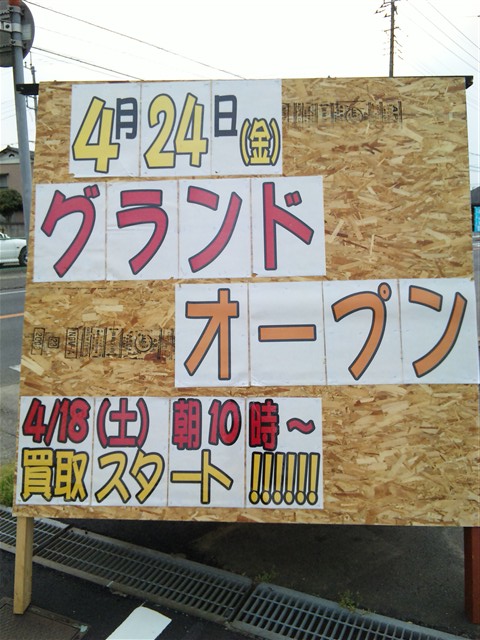 4月24日(金)
グランド
オープン
4/18(土) 朝10時~
買取スタート!!!!!!